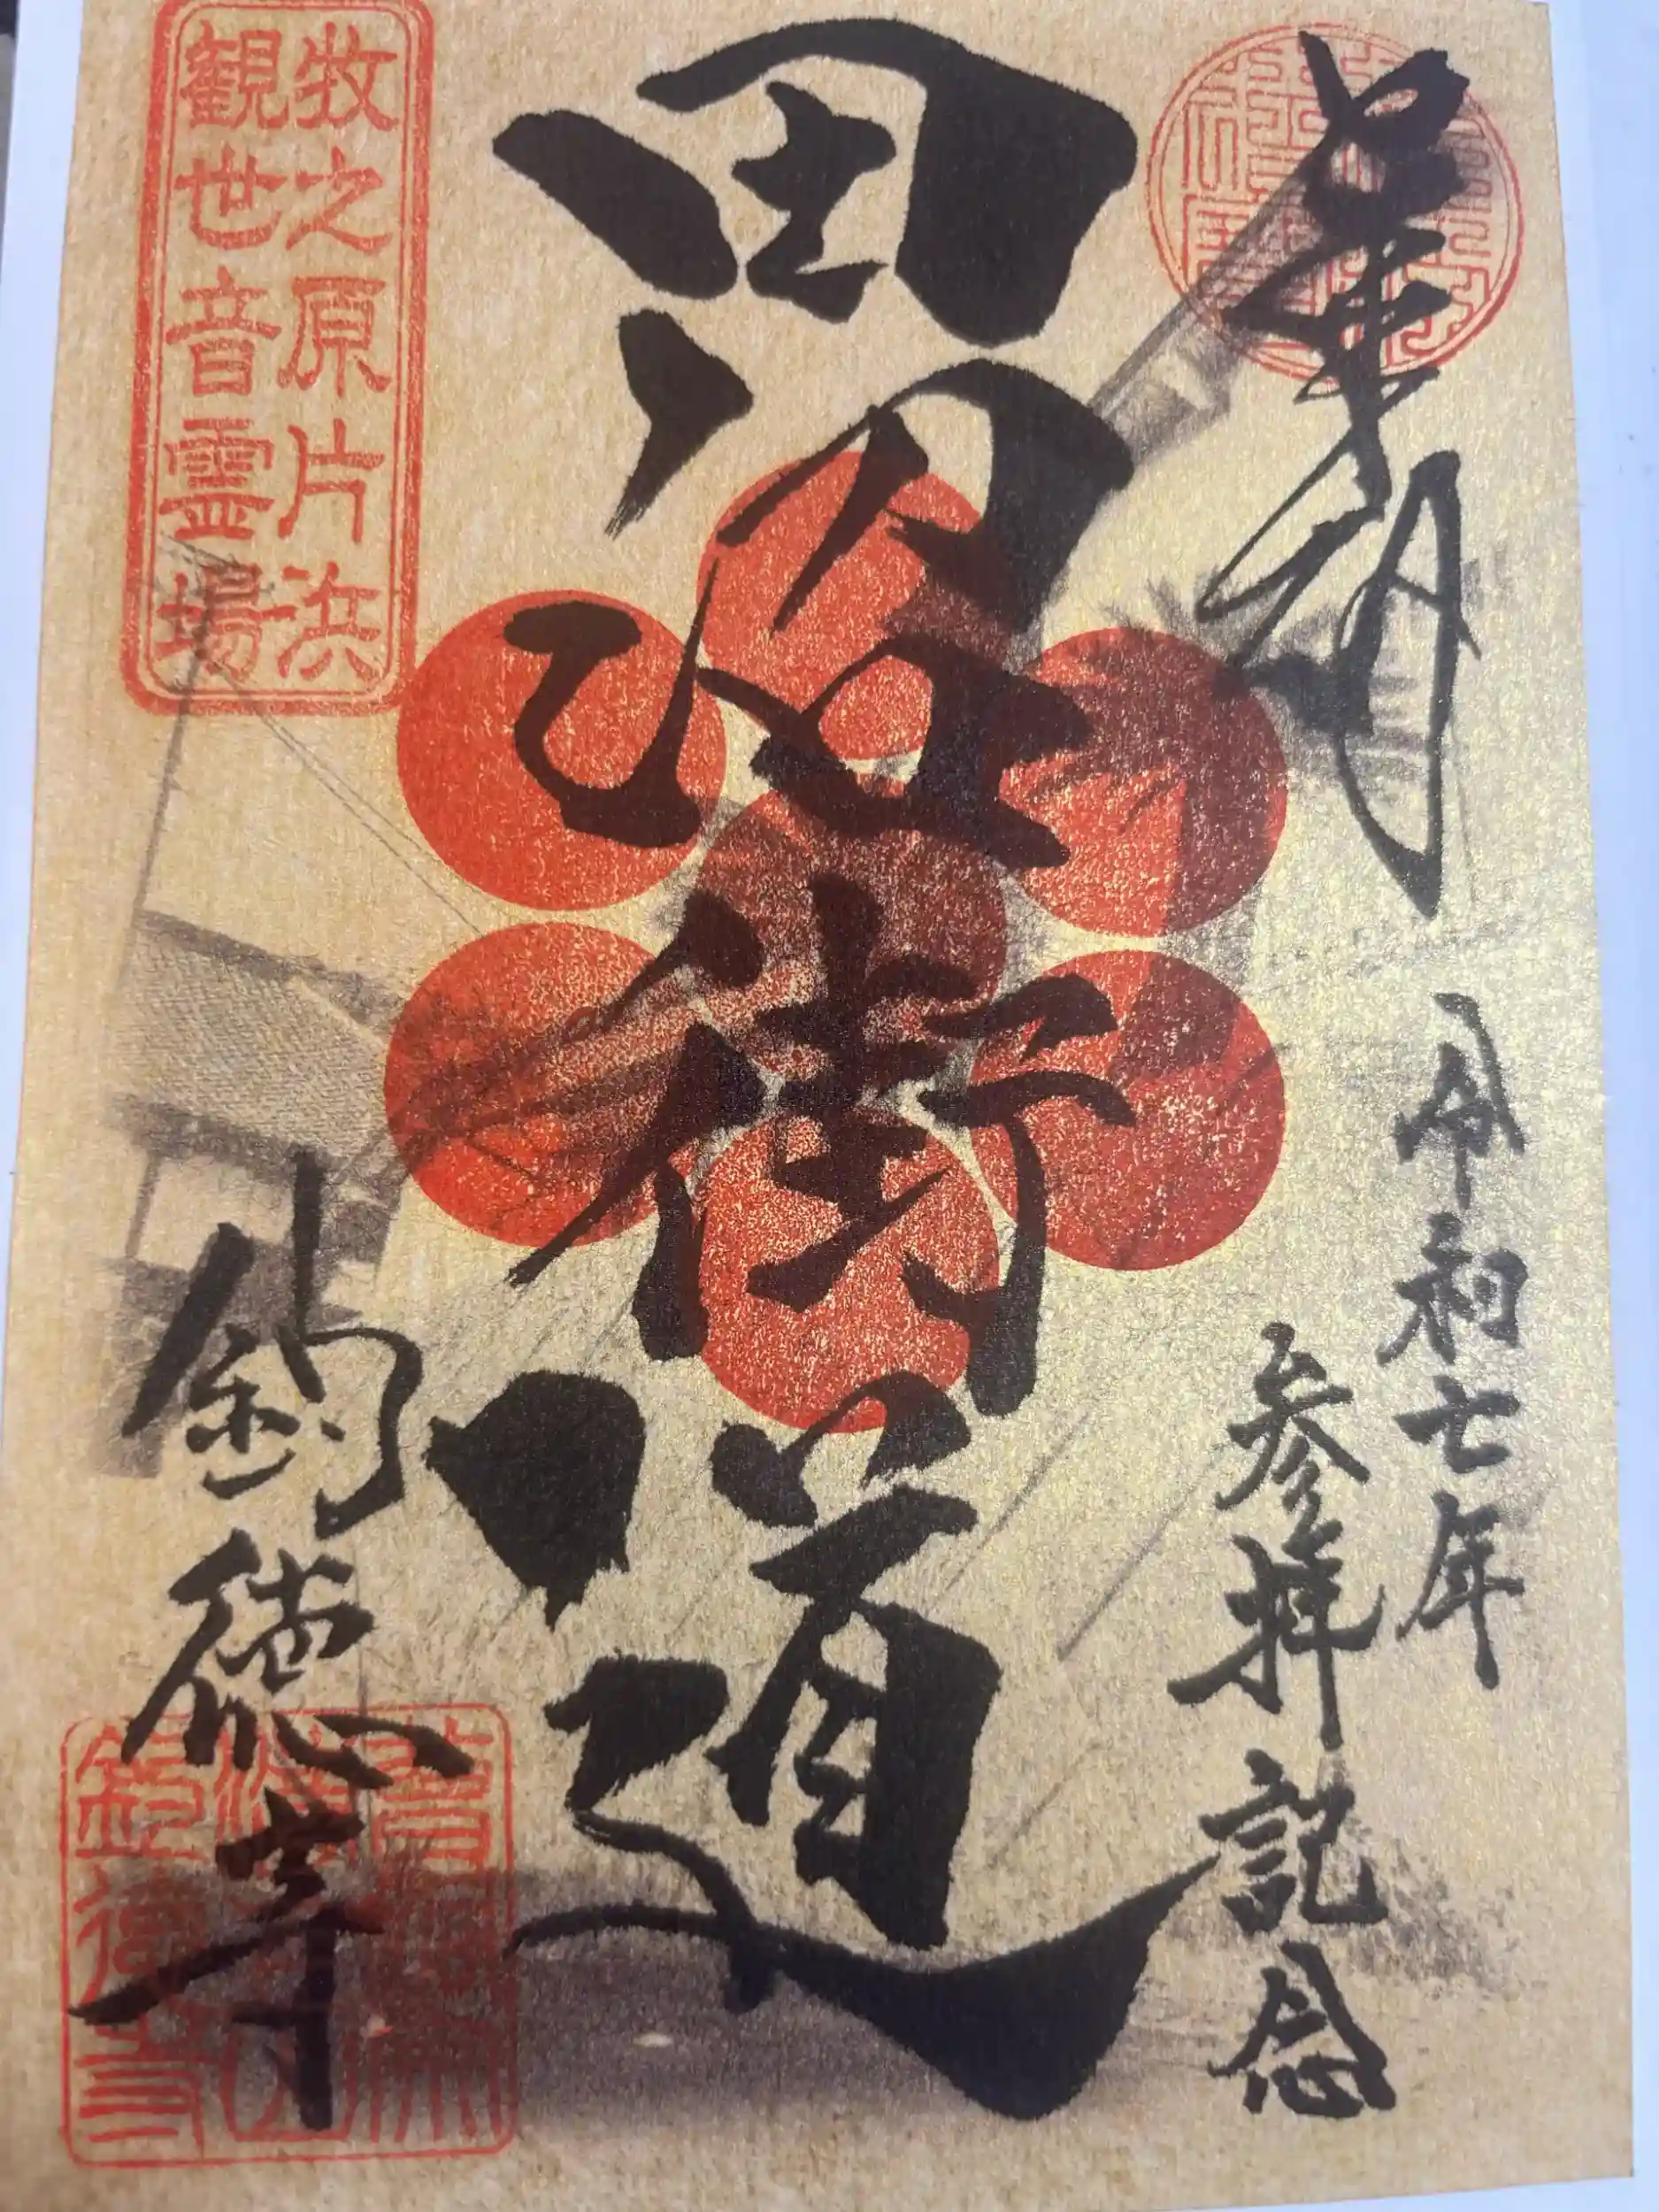 奉拝
令和七年
参拝記念
田沼街道
牧之原片浜
観世音霊場
釣徳寺